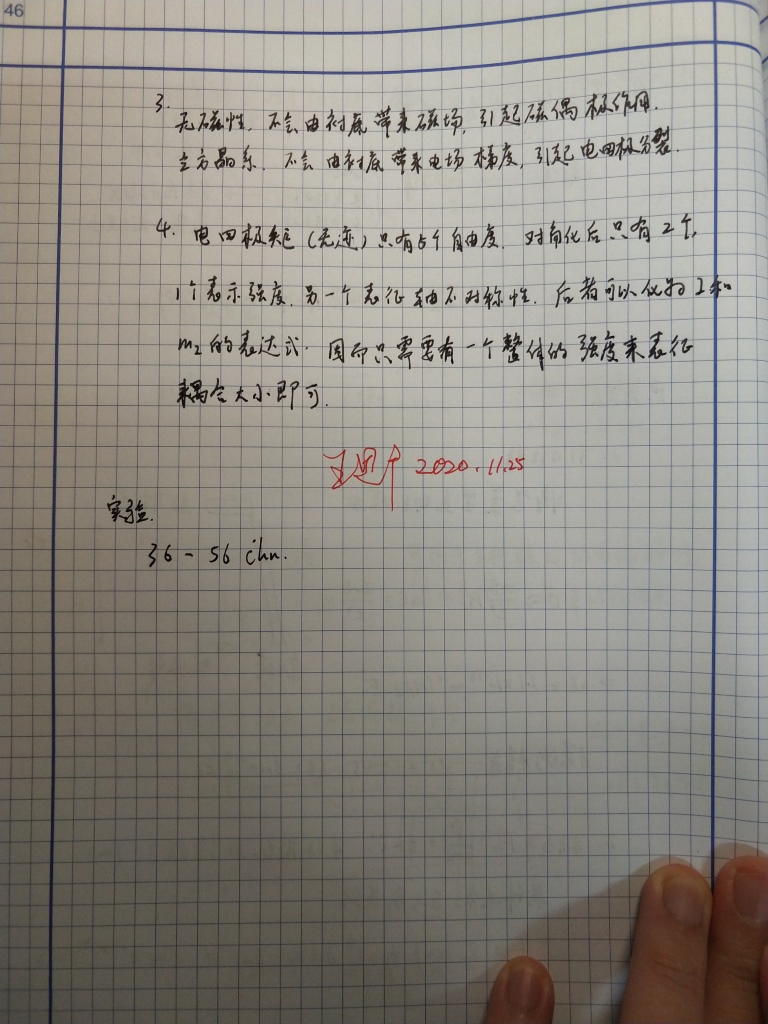 46
3.
无磁性. 不会由衬底带来磁场, 引起磁偶极作用.
立方晶系. 不会由衬底带来电场梯度, 引起电四极分裂.
4. 电四极矩(无迹)只有5个自由度. 对角化后只有2个,
1个表示强度, 另一个表征轴不对称性. 后者可以化为I和
m₂的表达式. 因而只需要有一个整体的强度来表征
耦合大小即可.
2020.11.25
实验.
36 - 56 chn.